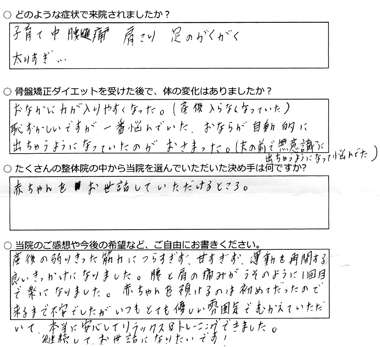 ○ どのような症状で来院されましたか？
子育て中 腰痛 肩こり 足のがくがく
太りすぎ…
○ 骨盤矯正ダイエットを受けた後で、体の変化はありましたか？
おなかに力が入りやすくなった。(産後入らなくなっていた)
恥ずかしいですが一番悩んでいた、おならが自動的に
出ちゃうようになっていたのがおさまった。(夫の前で無意識に
出ちゃうようになって悩んでた)
○ たくさんの整体院の中から当院を選んでいただいた決め手は何ですか？
赤ちゃんを お世話していただけるところ。
○ 当院のご感想や今後の希望など、ご自由にお書きください。
産後の弱りきった筋力につらすぎず、甘すぎず、運動を再開する
良いきっかけになりました。腰と肩の痛みがうそのように1回目
で楽になりました。赤ちゃんを預けるのは初めてだったので
来るまで不安でしたがいつもとても優しい雰囲気でむかえていただ
いて、本当に安心してリラックス&トレーニングできました。
継続して、お世話になりたいです！